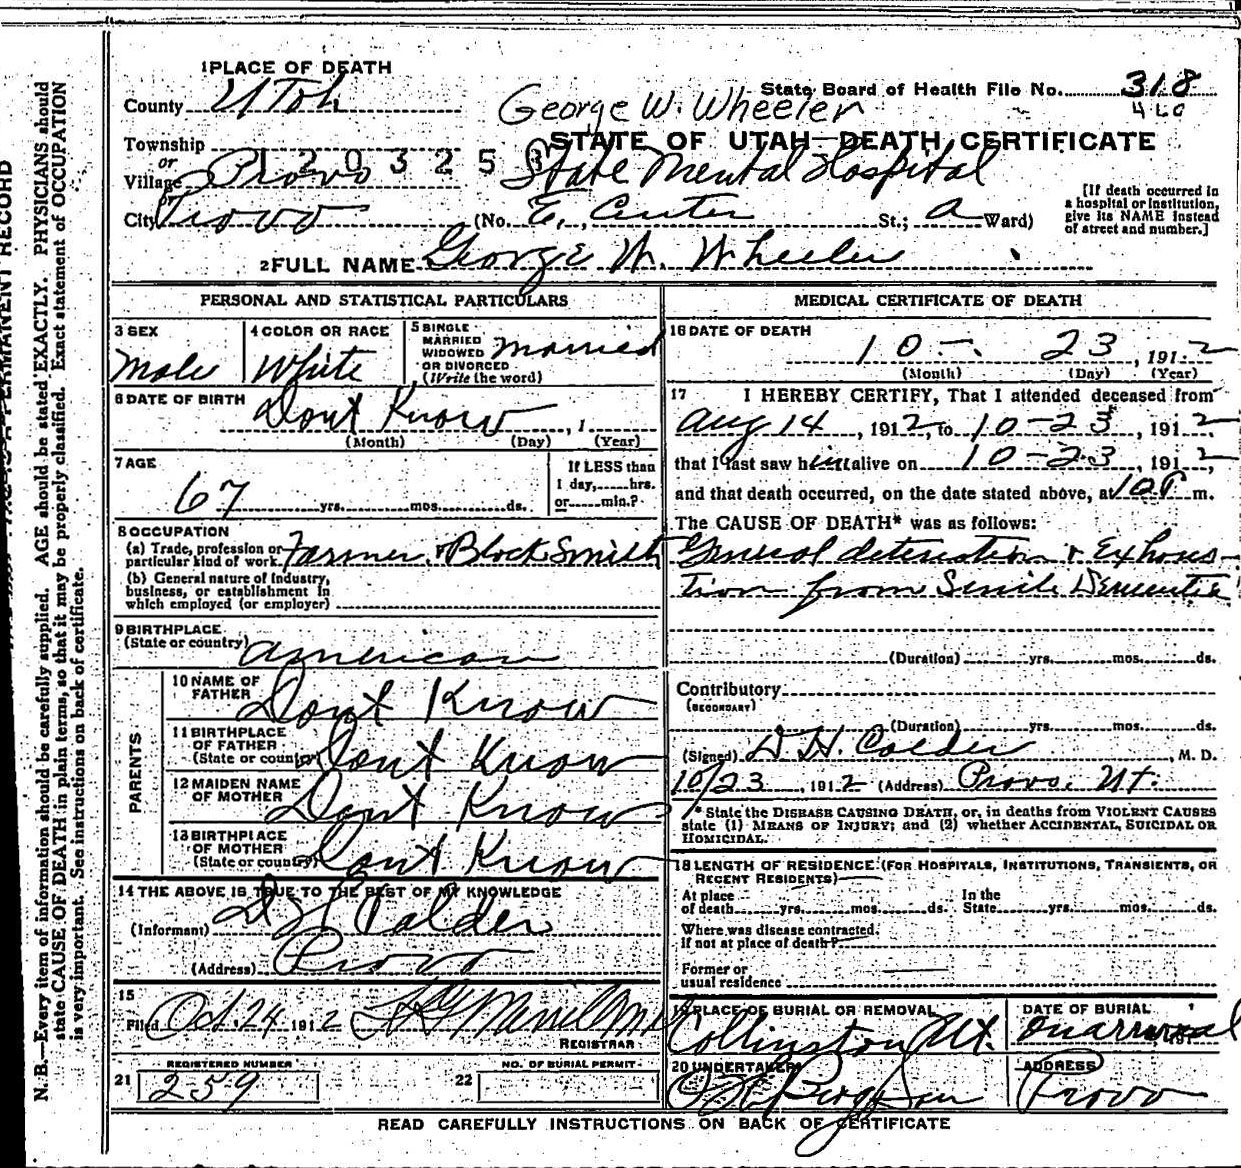 1 PLACE OF DEATH
County Utah
State Board of Health File No. 318
George W. Wheeler
STATE OF UTAH—DEATH CERTIFICATE
Township
or
Village Provo
1 2 0 3 2 5
State Mental Hospital
or
City Provo (No. E. Center St.; a Ward)
[If death occurred in
a hospital or institution,
give its NAME instead
of street and number.]
2 FULL NAME George W. Wheeler
PERSONAL AND STATISTICAL PARTICULARS
3 SEX
Male
4 COLOR OR RACE
White
5 SINGLE
MARRIED
WIDOWED
OR DIVORCED
(Write the word)
Married
6 DATE OF BIRTH
Dont Know , 1
(Month) (Day) (Year)
7 AGE
67 yrs. mos. ds.
If LESS than
1 day, hrs.
or min.?
8 OCCUPATION
(a) Trade, profession or
particular kind of work Farmer & Black Smith
(b) General nature of industry,
business, or establishment in
which employed (or employer)
9 BIRTHPLACE
(State or country) American
PARENTS
10 NAME OF
FATHER Dont Know
11 BIRTHPLACE
OF FATHER
(State or country) Dont Know
12 MAIDEN NAME
OF MOTHER Dont Know
13 BIRTHPLACE
OF MOTHER
(State or country) Dont Know
14 THE ABOVE IS TRUE TO THE BEST OF MY KNOWLEDGE
(Informant) D H Calder
(Address) Provo
15
Filed Oct 24 1912
REGISTRAR
REGISTERED NUMBER
21 259
NO. OF BURIAL PERMIT
22
MEDICAL CERTIFICATE OF DEATH
16 DATE OF DEATH
10 - 23 , 1912
(Month) (Day) (Year)
17 I HEREBY CERTIFY, That I attended deceased from
Aug 14 , 1912, to 10-23 , 1912
that I last saw him alive on 10-23 , 1912,
and that death occurred, on the date stated above, at m.
The CAUSE OF DEATH* was as follows:
General deterioation & Exhous-
tion from Senile Dementia
(Duration) yrs. mos. ds.
Contributory
(SECONDARY)
(Duration) yrs. mos. ds.
(Signed) D H. Calder , M. D.
10/23 , 1912 (Address) Provo, Ut.
* State the DISEASE CAUSING DEATH, or, in deaths from VIOLENT CAUSES
state (1) MEANS OF INJURY; and (2) whether ACCIDENTAL, SUICIDAL OR
HOMICIDAL.
18 LENGTH OF RESIDENCE (FOR HOSPITALS, INSTITUTIONS, TRANSIENTS, OR
RECENT RESIDENTS)
At place
of death yrs. mos. ds.
In the
State yrs. mos. ds.
Where was disease contracted,
if not at place of death?
Former or
usual residence
19 PLACE OF BURIAL OR REMOVAL
Collinston Ut.
DATE OF BURIAL
on arrival
20 UNDERTAKER
ADDRESS
Provo
READ CAREFULLY INSTRUCTIONS ON BACK OF CERTIFICATE
PERMANENT RECORD
N. B.—Every item of information should be carefully supplied. AGE should be stated EXACTLY. PHYSICIANS should
state CAUSE OF DEATH in plain terms, so that it may be properly classified. Exact statement of OCCUPATION
is very important. See instructions on back of certificate.